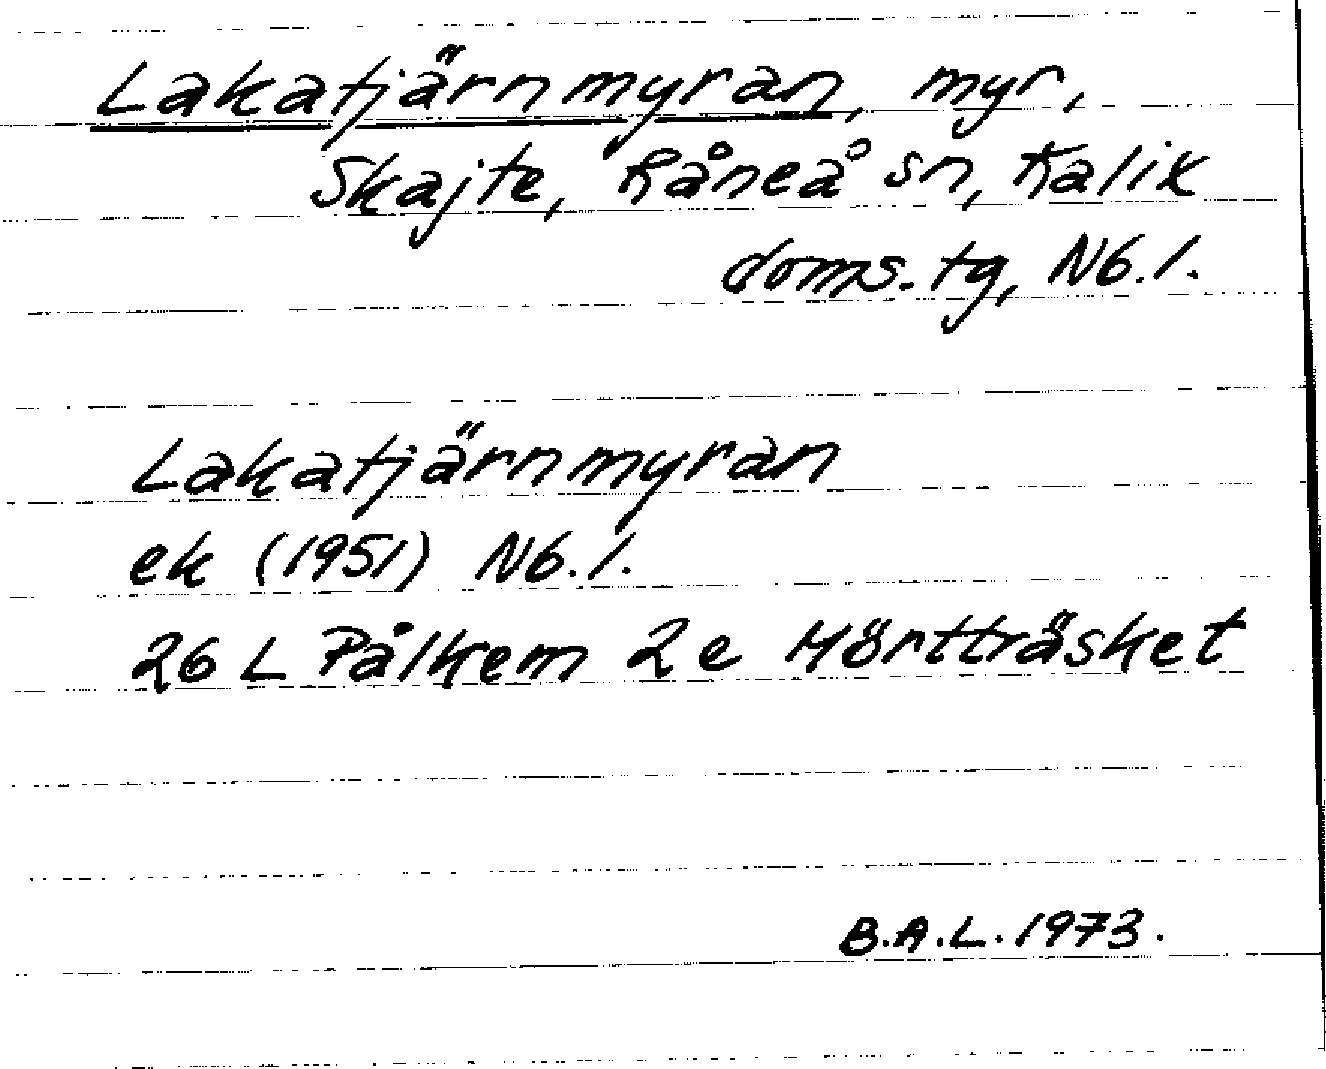 Lakatjärnmyran, myr,
Skajte, Råneå sn, Kalix
doms.tg, Nb.l.
Lakatjärnmyran
ek (1951) Nb.l.
26 L Pålkem 2e Mörtträsket
B.A.L. 1973.